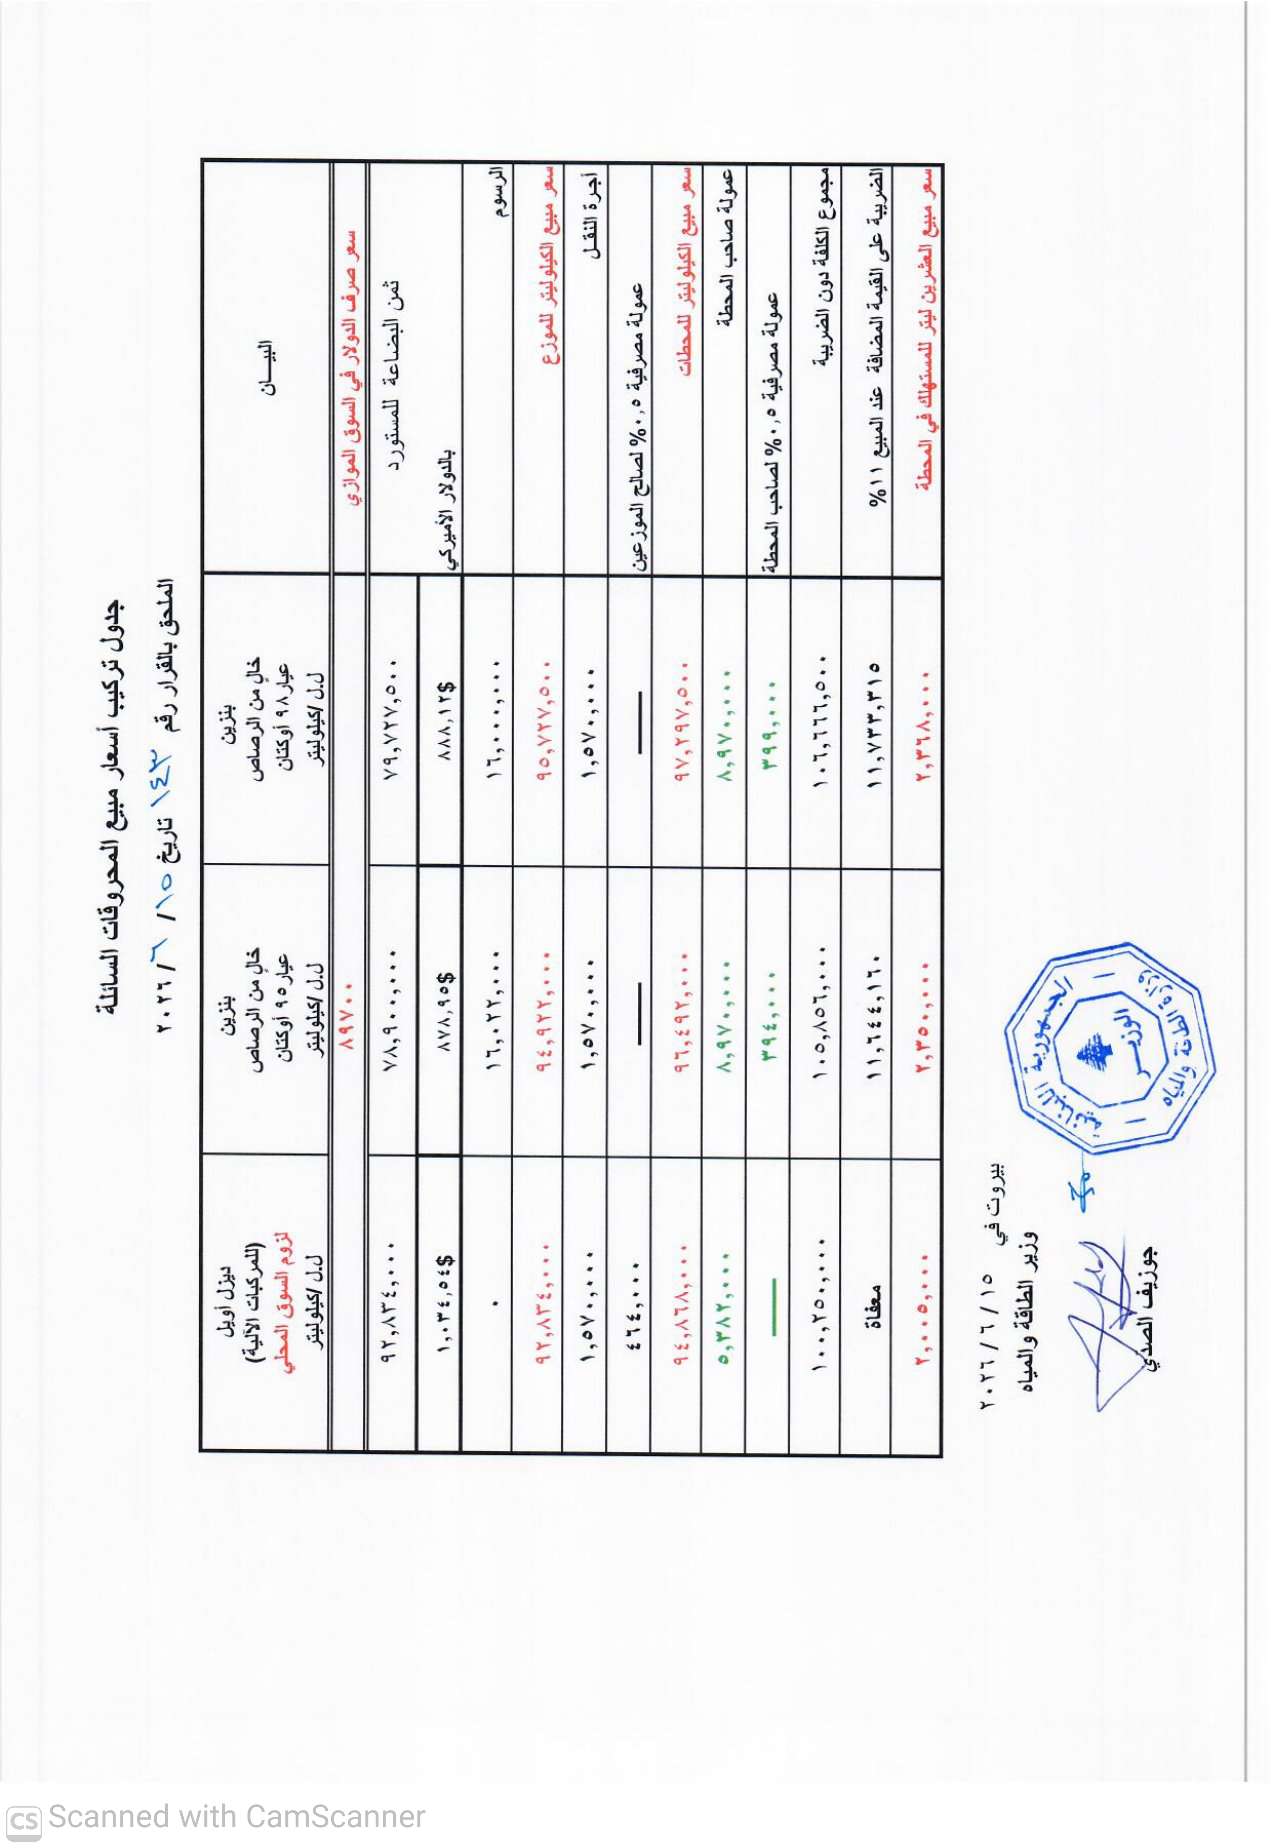 جدول تركيب أسعار مبيع المحروقات السائلة
الملحق بالقرار رقم ١٤٣ تاريخ ١٥ / ٦ / ٢٠٢٦
البيـــان
بنزين
خالٍ من الرصاص
عيار ٩٨ أوكتان
ل.ل /كيلوليتر
بنزين
خالٍ من الرصاص
عيار ٩٥ أوكتان
ل.ل /كيلوليتر
ديزل أويل
(للمركبات الآلية)
لزوم السوق المحلي
ل.ل /كيلوليتر
سعر صرف الدولار في السوق الموازي ٨٩٧٠٠
ثمن البضاعة للمستورد ٧٩,٧٢٧,٥٠٠ ٧٨,٩٠٠,٠٠٠ ٩٢,٨٣٤,٠٠٠
بالدولار الأميركي ٨٨٨,١٢$ ٨٧٨,٩٥$ ١,٠٣٤,٥٤$
الرسوم ١٦,٠٠٠,٠٠٠ ١٦,٠٢٢,٠٠٠ ٠
سعر مبيع الكيلوليتر للموزع ٩٥,٧٢٧,٥٠٠ ٩٤,٩٢٢,٠٠٠ ٩٢,٨٣٤,٠٠٠
أجرة النقـل ١,٥٧٠,٠٠٠ ١,٥٧٠,٠٠٠ ١,٥٧٠,٠٠٠
عمولة مصرفية ٠,٥% لصالح الموزعين — — ٤٦٤,٠٠٠
سعر مبيع الكيلوليتر للمحطات ٩٧,٢٩٧,٥٠٠ ٩٦,٤٩٢,٠٠٠ ٩٤,٨٦٨,٠٠٠
عمولة صاحب المحطة ٨,٩٧٠,٠٠٠ ٨,٩٧٠,٠٠٠ ٥,٣٨٢,٠٠٠
عمولة مصرفية ٠,٥% لصاحب المحطة ٣٩٩,٠٠٠ ٣٩٤,٠٠٠ —
مجموع الكلفة دون الضريبة ١٠٦,٦٦٦,٥٠٠ ١٠٥,٨٥٦,٠٠٠ ١٠٠,٢٥٠,٠٠٠
الضريبة على القيمة المضافة عند المبيع ١١% ١١,٧٣٣,٣١٥ ١١,٦٤٤,١٦٠ معفاة
سعر مبيع العشرين ليتر للمستهلك في المحطة ٢,٣٦٨,٠٠٠ ٢,٣٥٠,٠٠٠ ٢,٠٠٥,٠٠٠
بيروت في ١٥ / ٦ / ٢٠٢٦
وزير الطاقة والمياه
جوزيف الصدي
الجمهورية اللبنانية
الوزيـر
وزارة الطاقة والمياه
CS Scanned with CamScanner